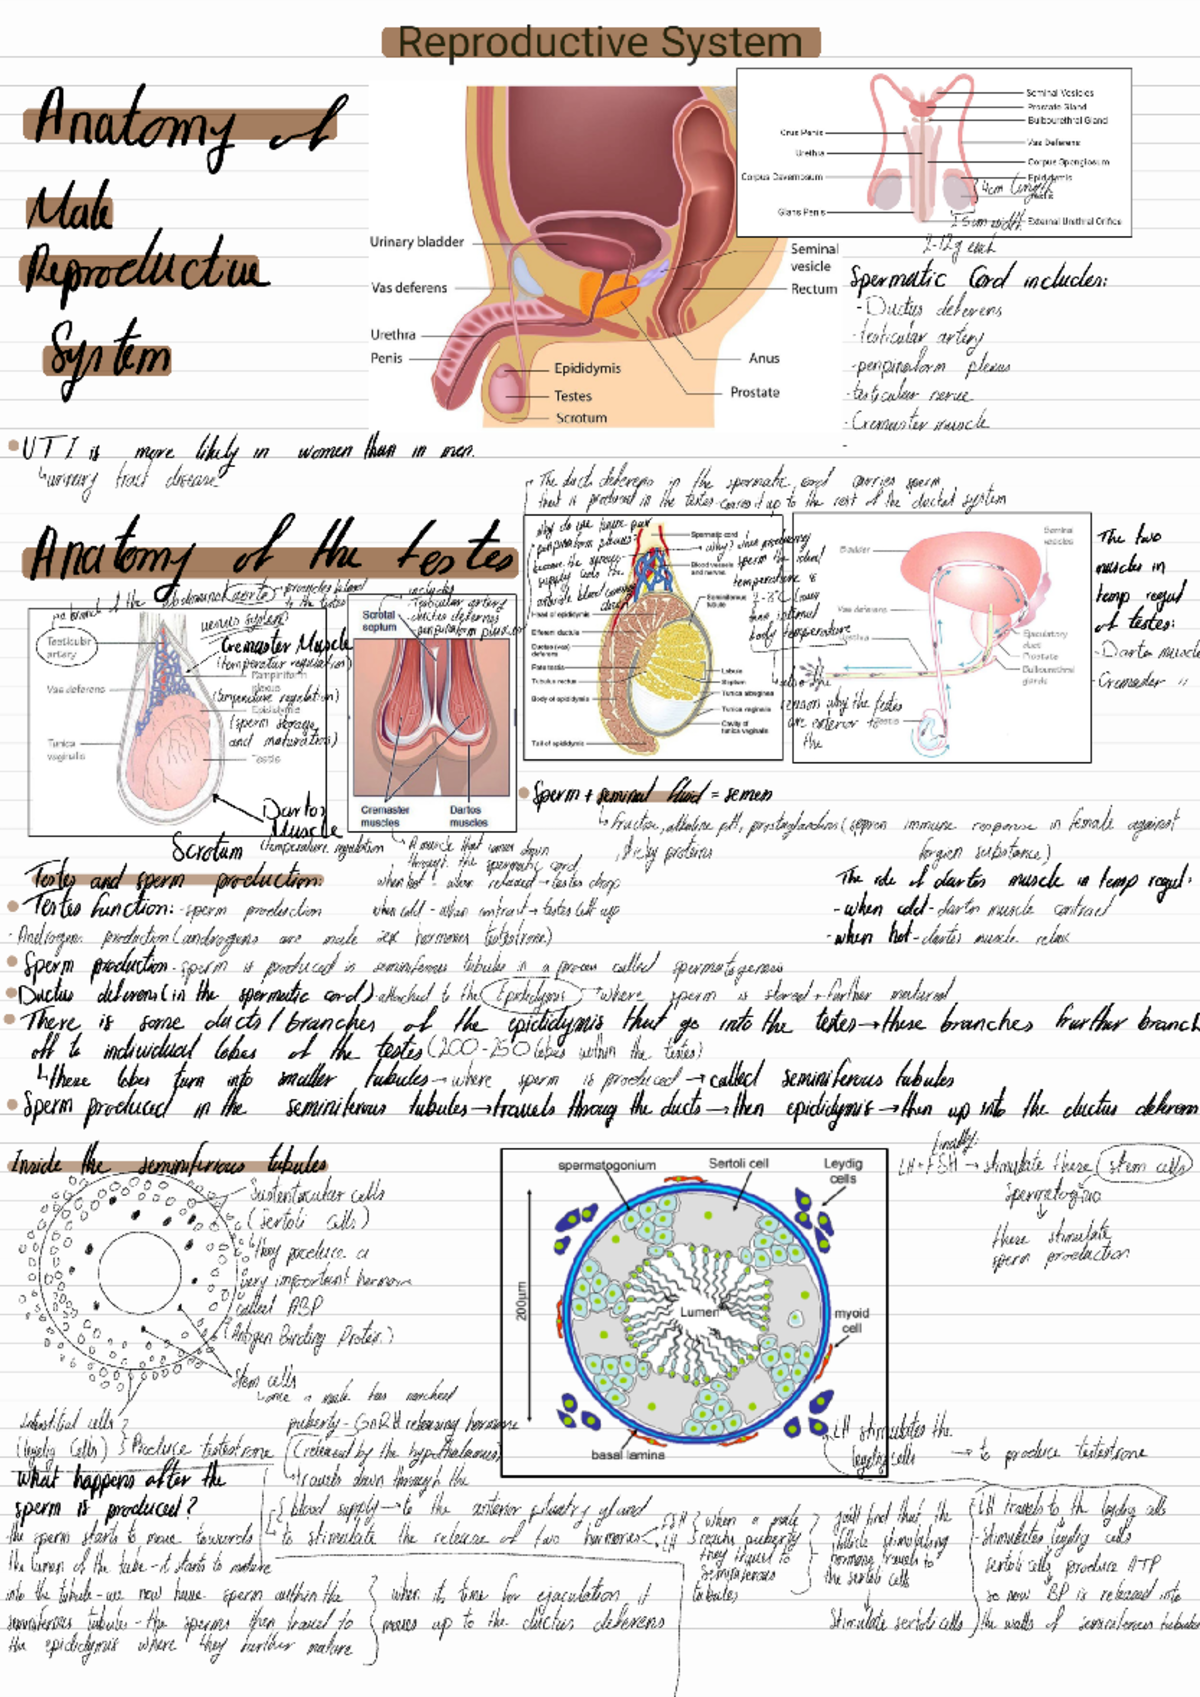 Reproductive System
Anatomy of
Male
Reproductive
System
Urinary bladder
Vas deferens
Urethra
Penis
Epididymis
Testes
Scrotum
Seminal
vesicle
Rectum
Anus
Prostate
Crus Penis
Urethra
Corpus Cavernosum
Glans Penis
Seminal Vesicles
Prostate Gland
Bulbourethral Gland
Vas Deferens
Corpus Spongiosum
Epididymis
4cm length
External Urethral Orifice
Spermatic Cord includes:
- Ductus deferens
- testicular artery
- testicular nerve
- Cremaster muscle
UTI is more likely in women than in men.
↳urinary tract disease
The ducts deferens in the spermatic cord carries sperm
that is produced in the testes - carries it up to the rest of the ductal system
Anatomy of the testes
Testicular
artery
Vas deferens
Tunica
vaginalis
Cremaster Muscle
(temperature regulation)
Epididymis
(sperm storage
and maturation)
Testis
Dartos
Muscle
(temperature regulation
Scrotum
Scrotal
septum
Testicular artery
Cremaster
muscles
Dartos
muscles
Spermatic cord
Blood vessels
and nerves
Seminiferous
tubule
Head of epididymis
Efferent ductule
Ductus (vas)
deferens
Rete testis
Tubulus rectus
Body of epididymis
Tail of epididymis
Lobule
Septum
Tunica albuginea
Tunica vaginalis
Cavity of
tunica vaginalis
body temperature
Bladder
Vas deferens
Urethra
Seminal
vesicles
Ejaculatory
duct
Prostate
Bulbourethral
glands
Testis
The two
muscles in
temp regul
of testes:
- Dartos muscle
- Cremaster "
Sperm + seminal fluid = semen
sticky proteins
when hot - when relaxed → testes drop
when cold - when contract → testes lift up
The role of dartos muscle in temp regul:
- when cold - dartos muscle contract
- when hot - dartos muscle relax
Testes and sperm production:
Testes function: - sperm production
- Androgen production (androgens are male sex hormones
Sperm production - sperm is produced in seminiferous tubules in a process called spermatogenesis
Ductus deferens (in the spermatic cord) - attached to the Epididymis → where sperm is stored + further matured
There is some ducts / branches of the epididymis that go into the testes → these branches further branch
off to individual lobes of the testes (200-250 lobes within the testes)
↳these lobes turn into smaller tubules → where sperm is produced → called seminiferous tubules
Sperm produced in the seminiferous tubules → travels throug the ducts → then epididymis → then up into the ductus deferens
Inside the seminiferious tubules
Sustentacular cells
(Sertoli cells)
↳they produce a
very important hormone
called ABP
Stem cells
↳once a male has reached
puberty - GnRH releasing hormone
(released by the hypothalamus)
↳travels down through the
blood supply → to the anterior pituitary gland
to stimulate the release of two hormones
FSH
LH
when a male
reachs puberty
they travel to
seminiferous
tubules
Interstitial cells
(leydig cells)
Produce testestrone
spermatogonium
Sertoli cell
Leydig
cells
200µm
Lumen
myoid
cell
basal lamina
finally:
LH + FSH → stimulate these stem cells
these stimulate
sperm production
LH stimulates the
leydig cells → to produce testestrone
What happens after the
sperm is produced?
the sperm starts to move towards
the lumen of the tube - it starts to mature
into the tubule - we now have sperm within the
seminiferous tubule - the sperms then travel to
the epididymis where they further mature
when it's time for ejaculation it
moves up to the ductus deferens
you'll find that the
follicle stimulating
hormone travels to
the sertoli cells
stimulate sertoli cells
LH travels to the leydig cells
- stimulates leydig cells
so now BP is released into
the walls of seminiferous tubules